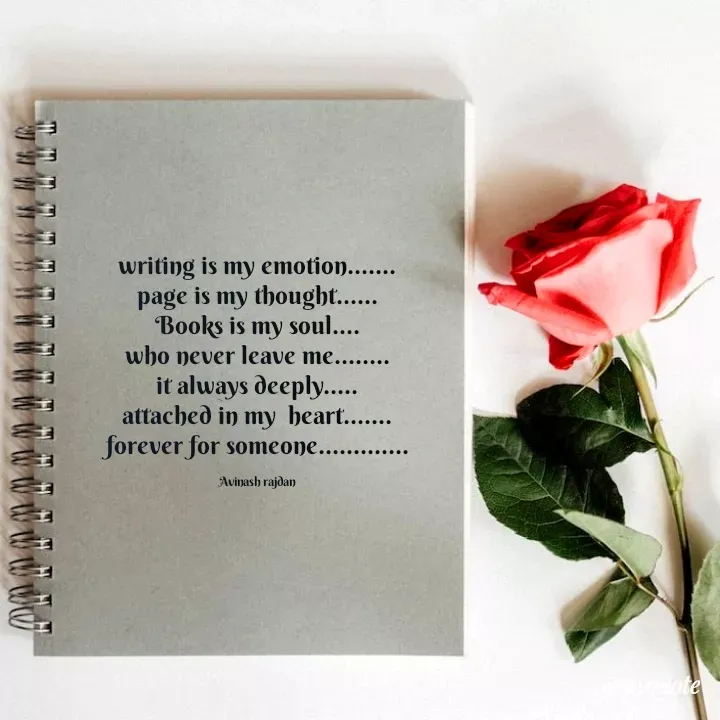 writing is my emotion.......
page is my thought......
Books is my soul....
who never leave me........
it always deeply.....
attached in my heart.......
forever for someone.............
Avinash rajdan